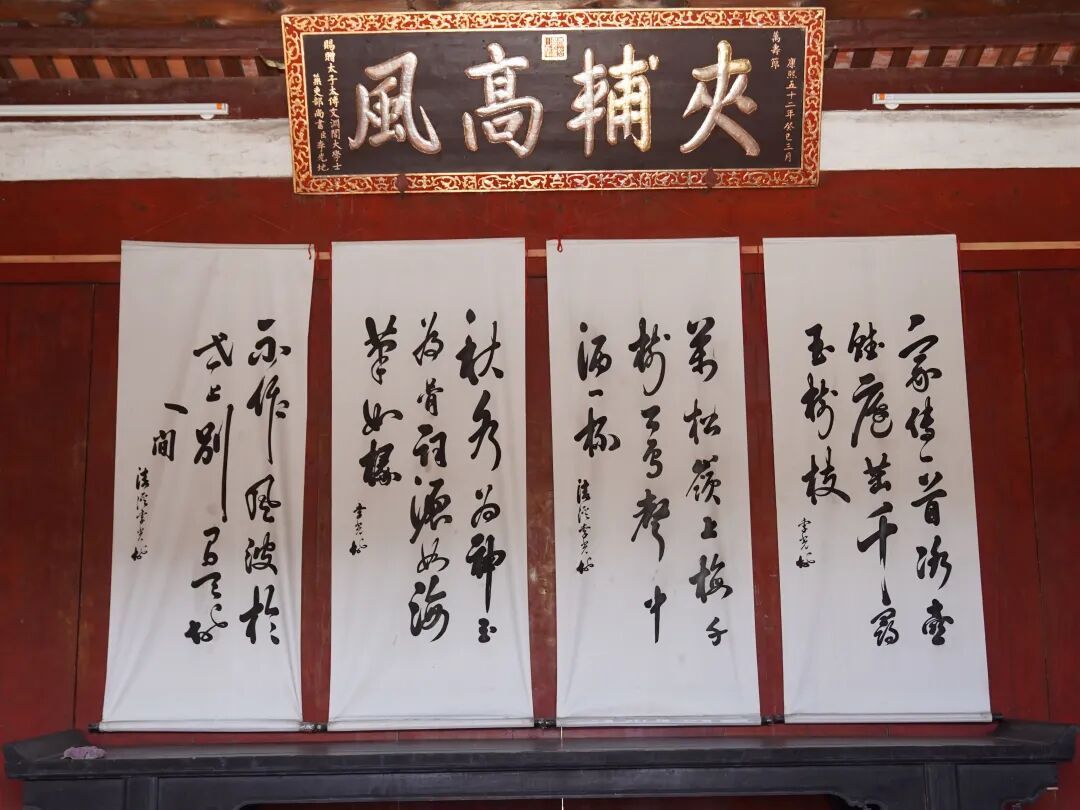 夾輔高風
康熙五十二年癸巳三月
萬壽節
賜贈太子太傅文淵閣大學士
兼吏部尚書臣李光地
家傳一首冰壺
賦庭茁千尋
玉樹枝
李光地
萬松嶺上梅千
樹百鳥聲中
酒一杯
清溪李光地
秋水為神玉
為骨詞源如海
筆如椽
李光地
不作風波於
世上別有天地
一間
清溪李光地